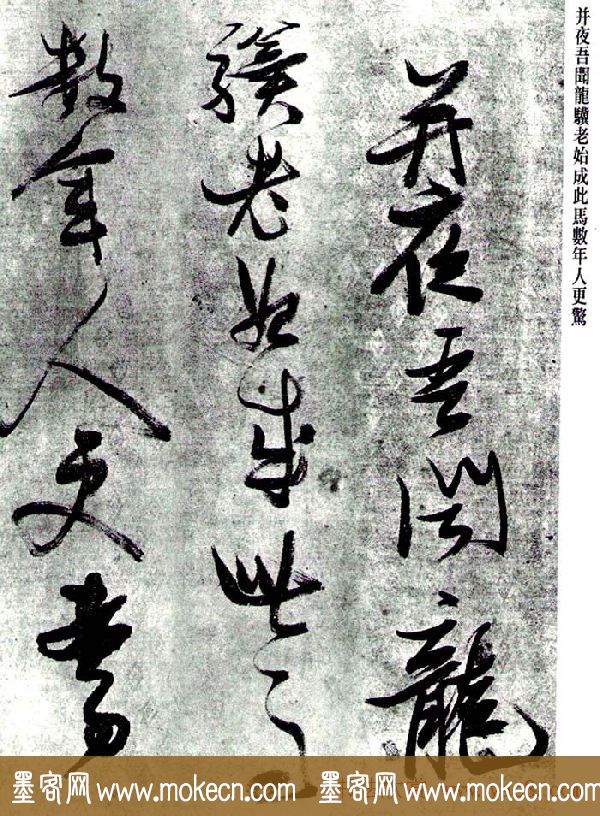 并夜吾聞龍驥老始成此馬數年人更驚
并夜吾聞龍
驥老始成此馬
數年人更驚
墨客网 www.mokecn.com 墨客网 www.mokecn.com